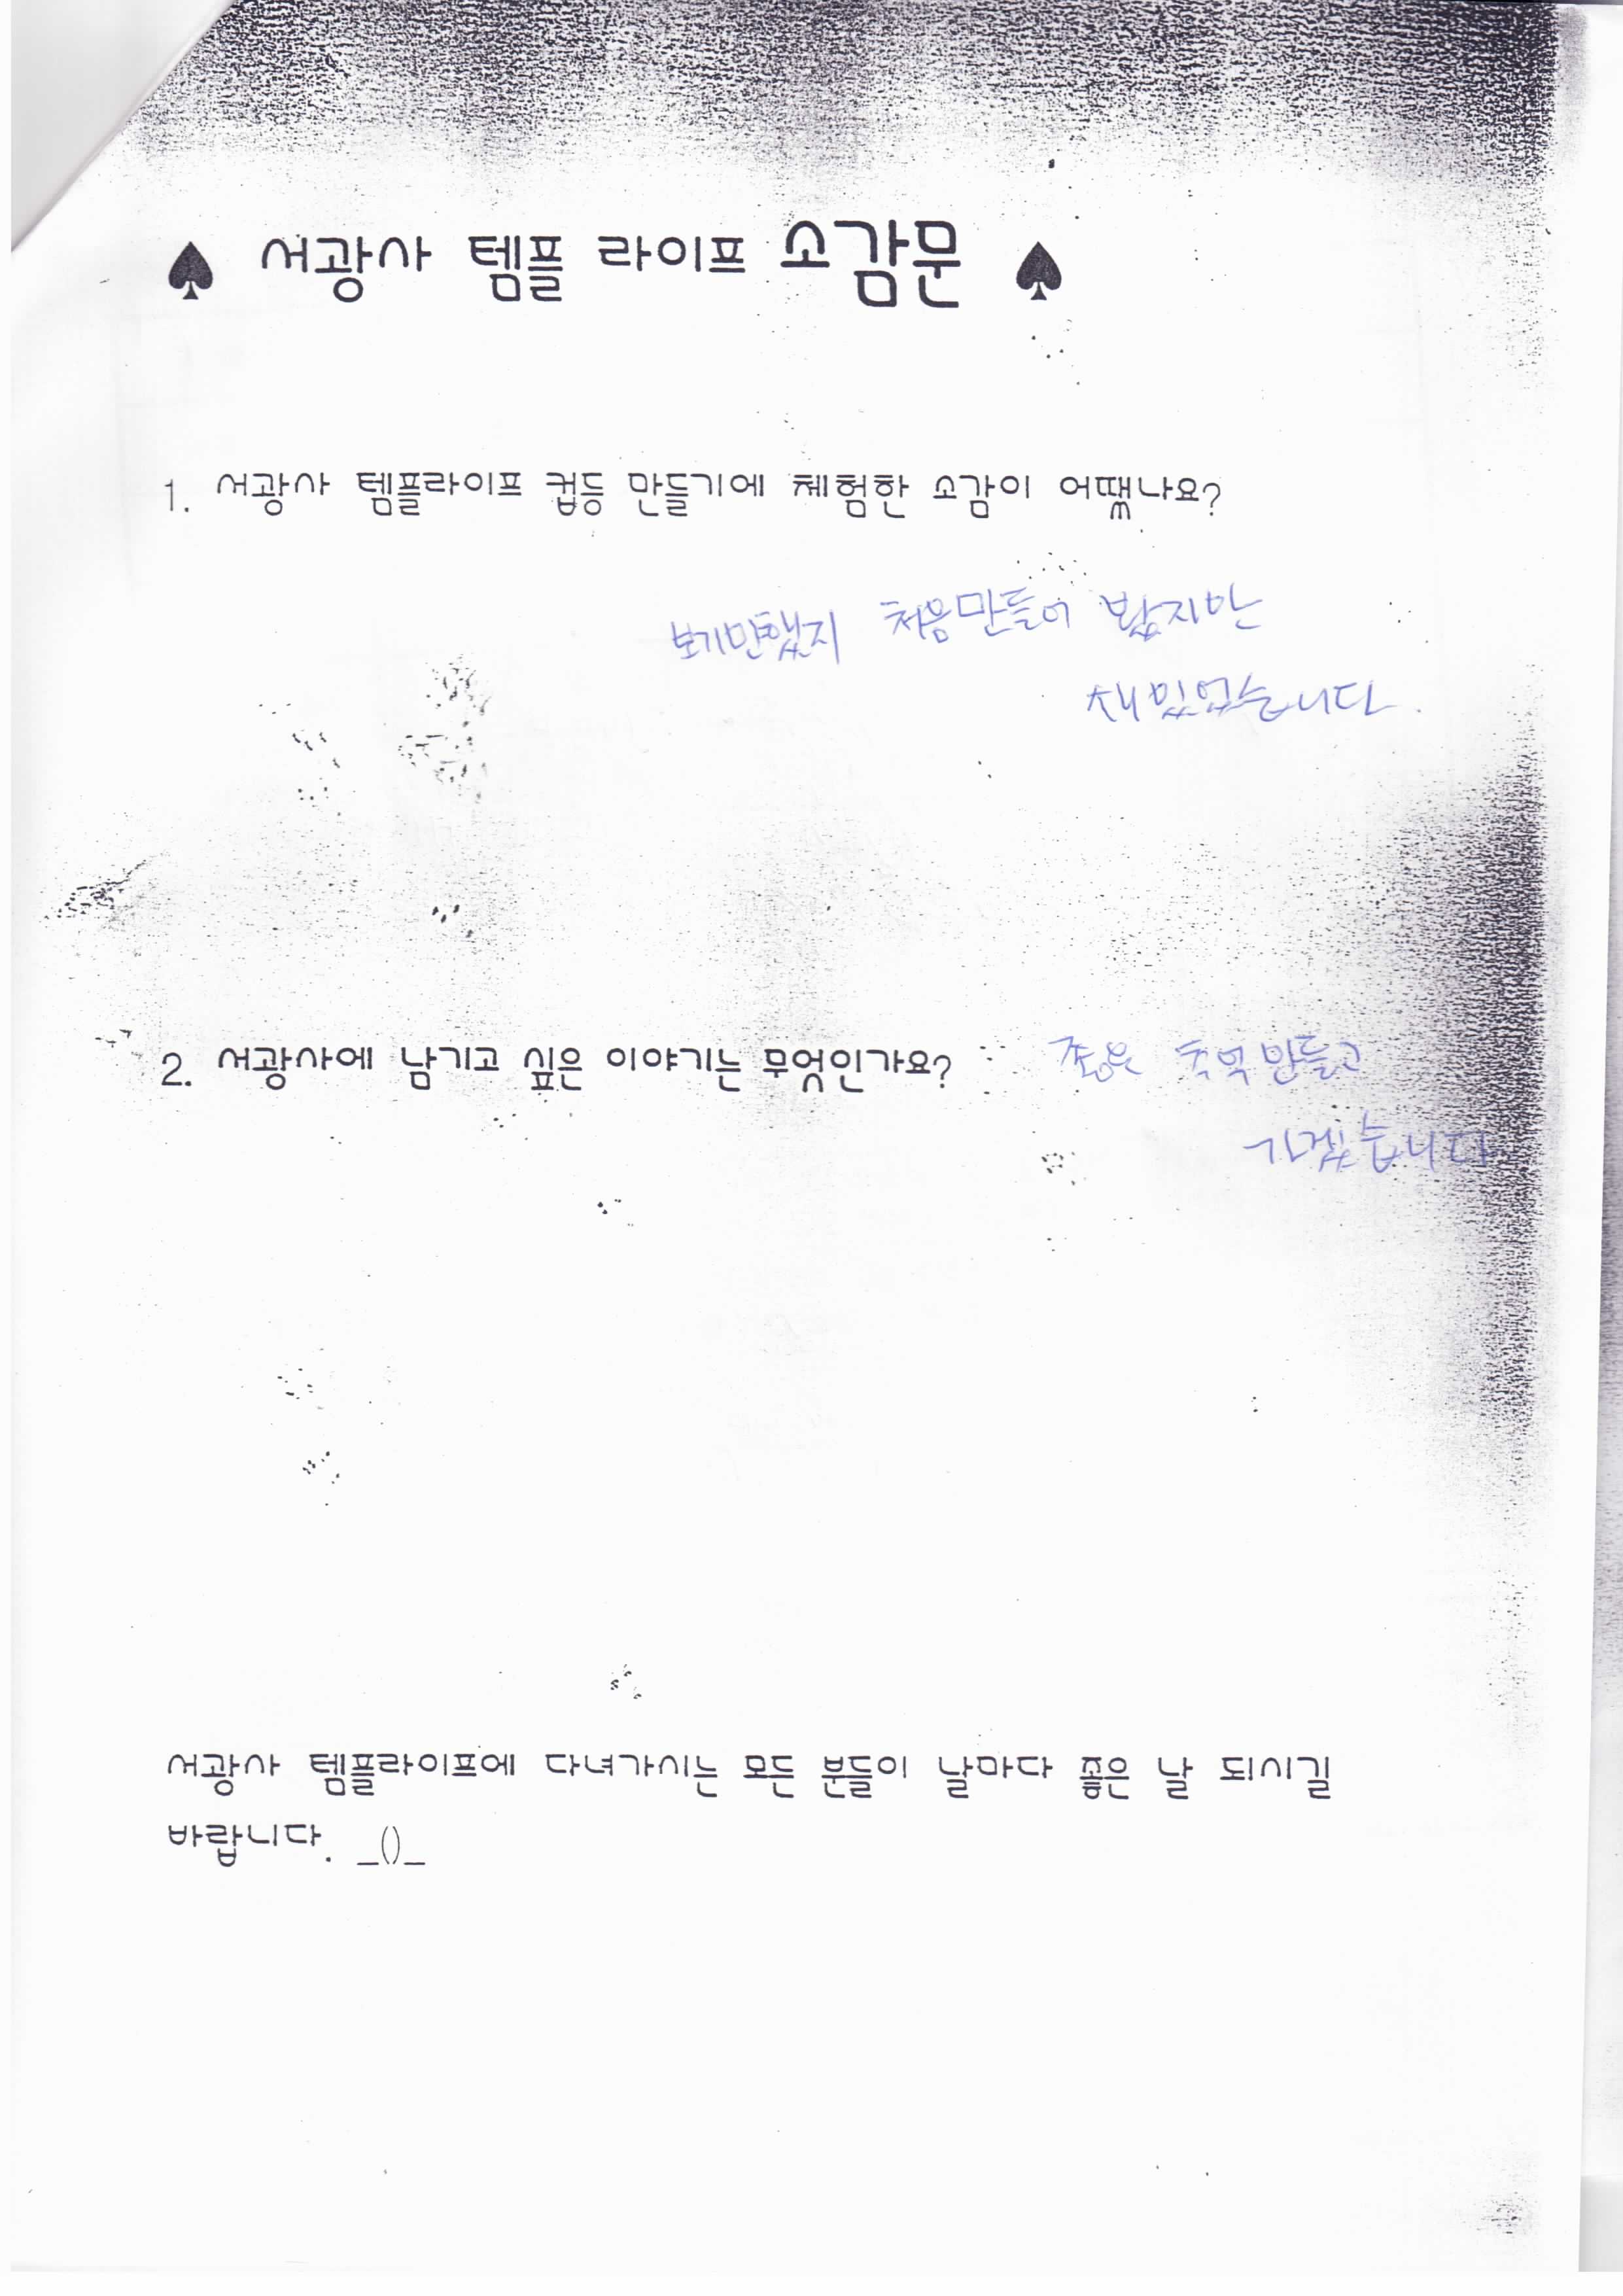 ♠ 서광사 템플 라이프 소감문 ♠
1. 서광사 템플라이프 컵등 만들기에 체험한 소감이 어땠나요?
보기만했지 처음만들어 봤지만
재밌었습니다
2. 서광사에 남기고 싶은 이야기는 무엇인가요?
좋은 추억만들고
가겠습니다
서광사 템플라이프에 다녀가시는 모든 분들이 날마다 좋은 날 되시길
바랍니다. _()_